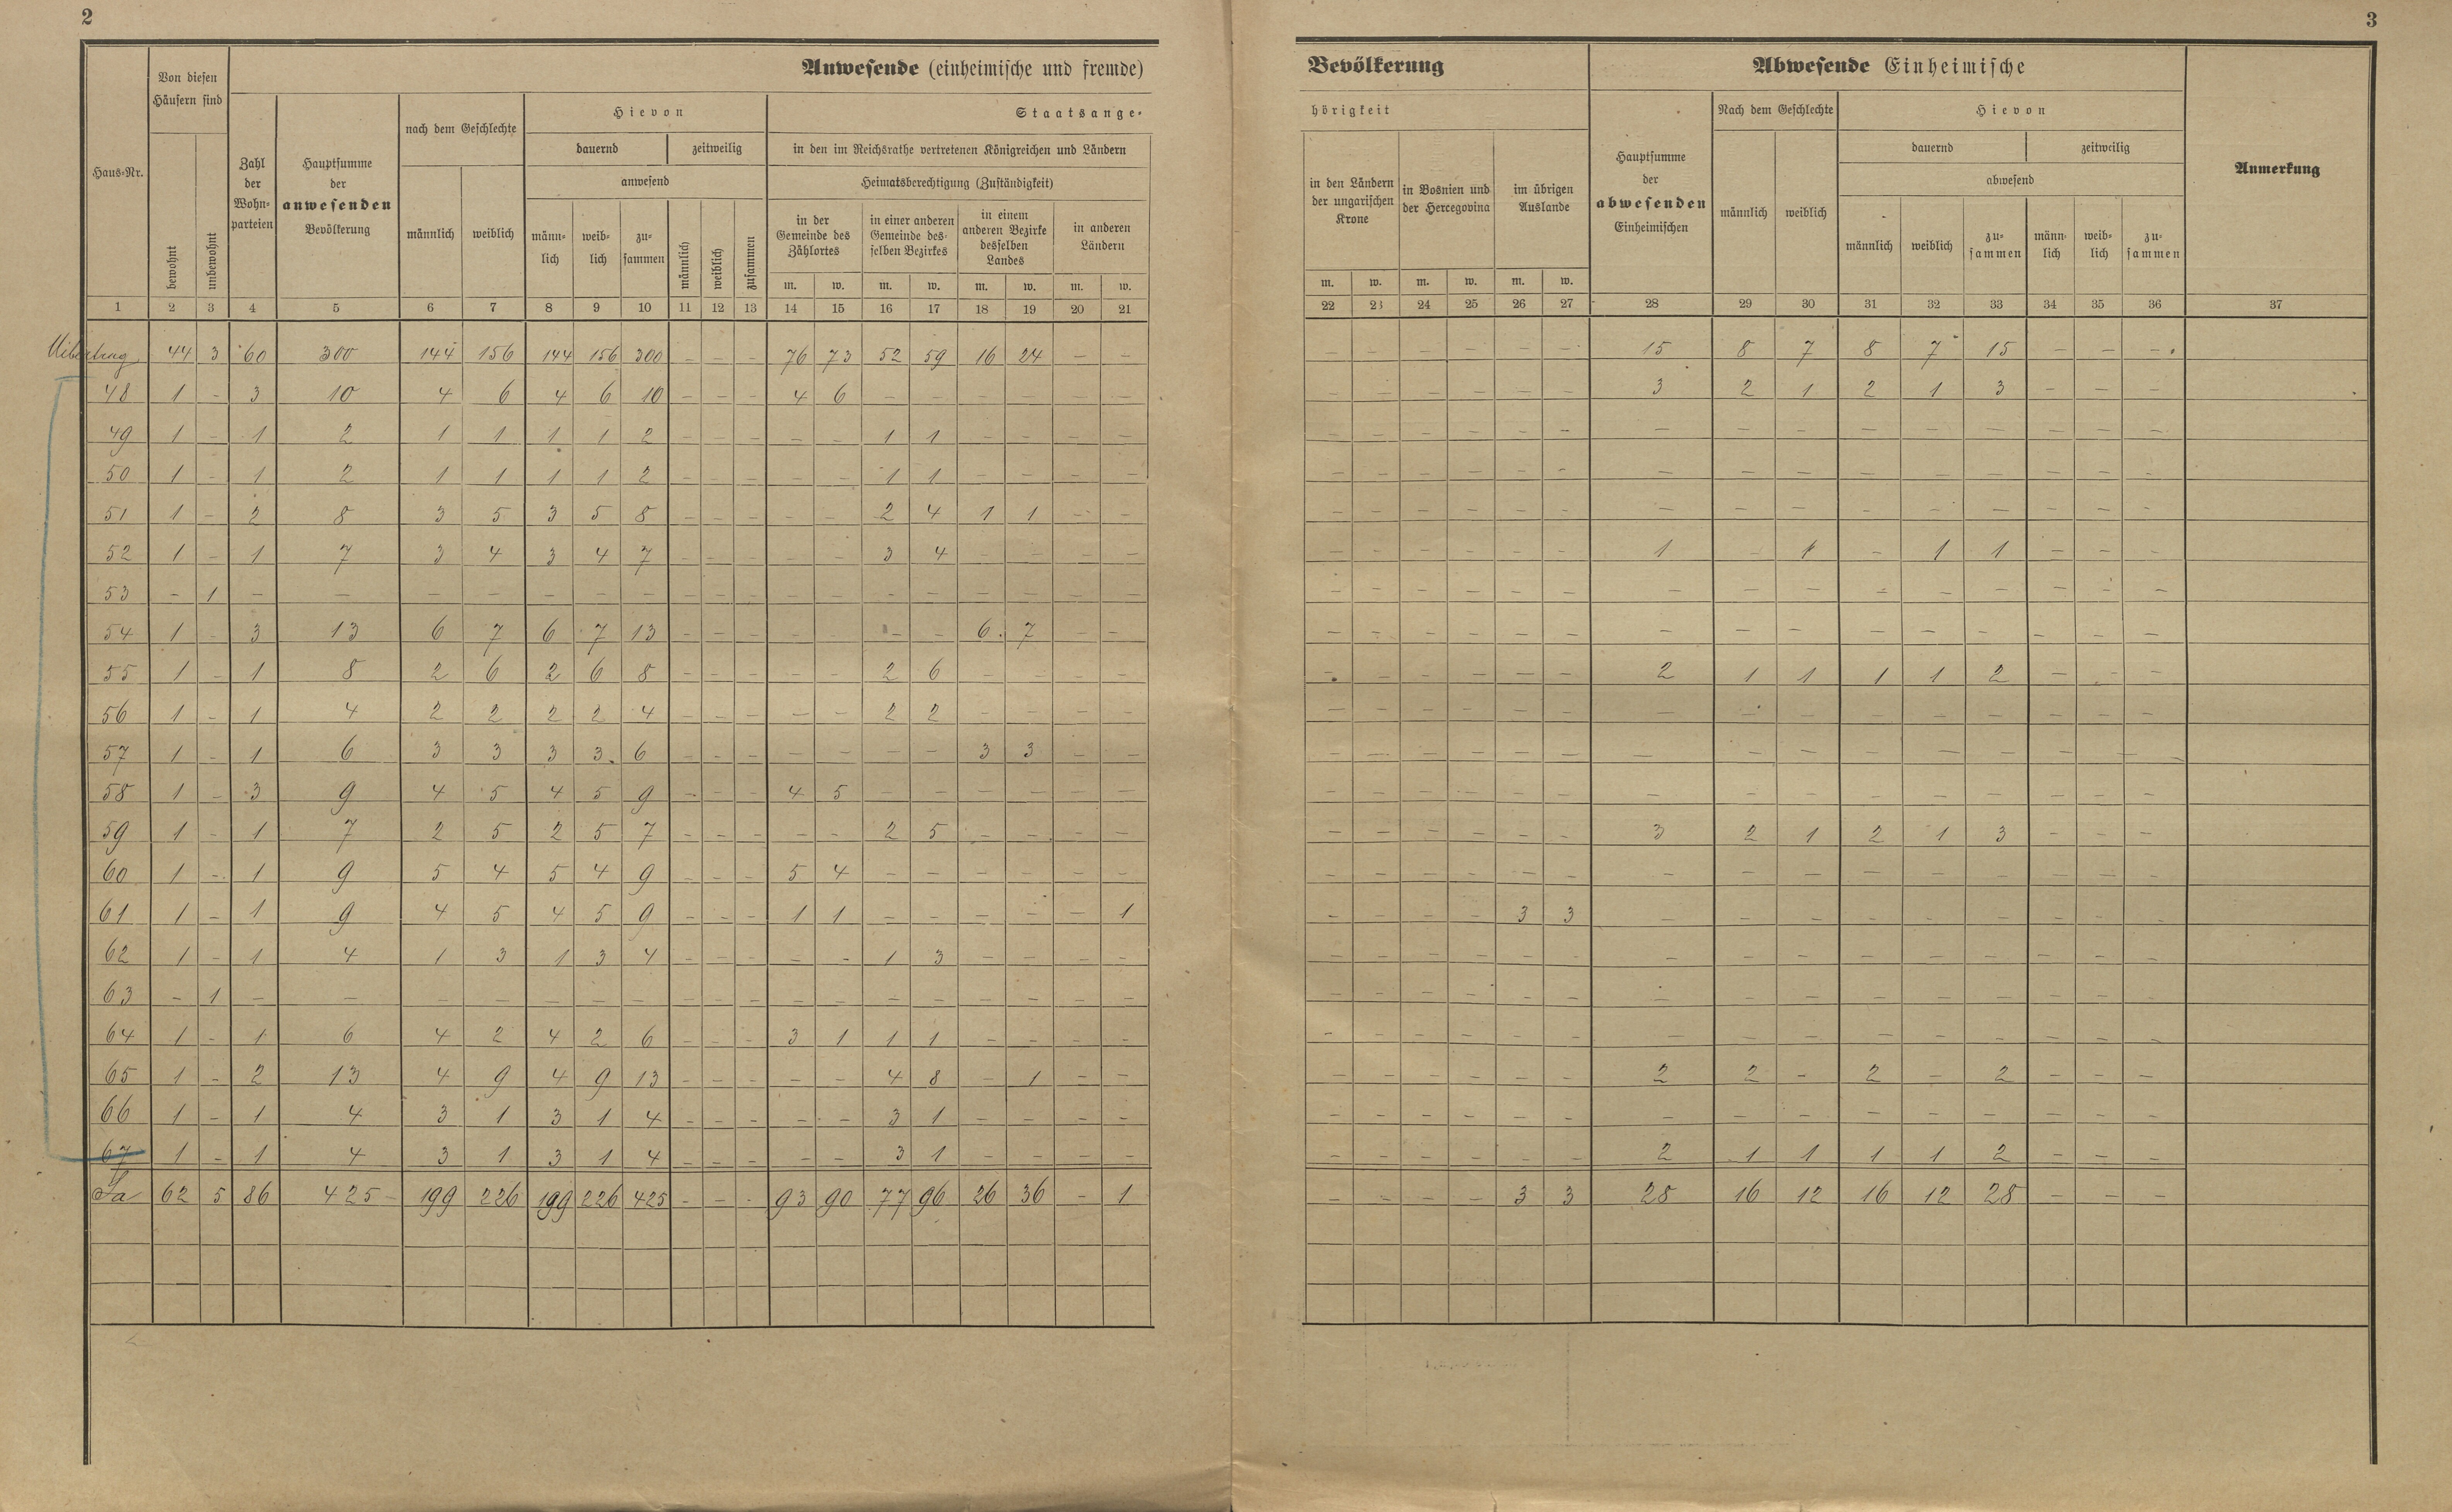 2
3
Anwesende (einheimische und fremde)
Bevölkerung
Abwesende Einheimische
Haus-Nr.
Von diesen Häusern sind
bewohnt
unbewohnt
Zahl der Wohn-parteien
Hauptsumme der anwesenden Bevölkerung
nach dem Geschlechte
männlich
weiblich
Hievon
dauernd
zeitweilig
anwesend
männ-lich
weib-lich
zu-sammen
männlich
weiblich
zusammen
Staatsange-
in den im Reichsrathe vertretenen Königreichen und Ländern
Heimatsberechtigung (Zuständigkeit)
in der Gemeinde des Zählortes
in einer anderen Gemeinde des-selben Bezirkes
in einem anderen Bezirke desselben Landes
in anderen Ländern
m. w. m. w. m. w. m. w.
hörigkeit
in den Ländern der ungarischen Krone
in Bosnien und der Hercegovina
im übrigen Auslande
m. w. m. w. m. w.
Hauptsumme der abwesenden Einheimischen
Nach dem Geschlechte
männlich
weiblich
Hievon
dauernd
zeitweilig
abwesend
männlich
weiblich
zu-sammen
männ-lich
weib-lich
zu-sammen
Anmerkung
1 2 3 4 5 6 7 8 9 10 11 12 13 14 15 16 17 18 19 20 21 22 23 24 25 26 27 28 29 30 31 32 33 34 35 36 37
Uibertrag 44 3 60 300 144 156 144 156 300 - - - 76 73 52 59 16 24 - - - - - - - - 15 8 7 8 7 15 - - -
48 1 - 3 10 4 6 4 6 10 - - - 4 6 - - - - - - - - - - - - 3 2 1 2 1 3 - - -
49 1 - 1 2 1 1 1 1 2 - - - - - 1 1 - - - - - - - - - - - - - - - - - - -
50 1 - 1 2 1 1 1 1 2 - - - - - 1 1 - - - - - - - - - - - - - - - - - - -
51 1 - 2 8 3 5 3 5 8 - - - - - 2 4 1 1 - - - - - - - - - - - - - - - - -
52 1 - 1 7 3 4 3 4 7 - - - - - 3 4 - - - - - - - - - - 1 - 1 - 1 1 - - -
53 - 1 - - - - - - - - - - - - - - - - - - - - - - - - - - - - - - - - -
54 1 - 3 13 6 7 6 7 13 - - - - - - - 6 7 - - - - - - - - - - - - - - - - -
55 1 - 1 8 2 6 2 6 8 - - - - - 2 6 - - - - - - - - - - 2 1 1 1 1 2 - - -
56 1 - 1 4 2 2 2 2 4 - - - - - 2 2 - - - - - - - - - - - - - - - - - - -
57 1 - 1 6 3 3 3 3 6 - - - - - - - 3 3 - - - - - - - - - - - - - - - - -
58 1 - 3 9 4 5 4 5 9 - - - 4 5 - - - - - - - - - - - - - - - - - - - - -
59 1 - 1 7 2 5 2 5 7 - - - - - 2 5 - - - - - - - - - - 3 2 1 2 1 3 - - -
60 1 - 1 9 5 4 5 4 9 - - - 5 4 - - - - - - - - - - - - - - - - - - - - -
61 1 - 1 9 4 5 4 5 9 - - - 1 1 - - - - - 1 - - - - 3 3 - - - - - - - - -
62 1 - 1 4 1 3 1 3 4 - - - - - 1 3 - - - - - - - - - - - - - - - - - - -
63 - 1 - - - - - - - - - - - - - - - - - - - - - - - - - - - - - - - - -
64 1 - 1 6 4 2 4 2 6 - - - 3 1 1 1 - - - - - - - - - - - - - - - - - - -
65 1 - 2 13 4 9 4 9 13 - - - - - 4 8 - 1 - - - - - - - - 2 2 - 2 - 2 - - -
66 1 - 1 4 3 1 3 1 4 - - - - - 3 1 - - - - - - - - - - - - - - - - - - -
67 1 - 1 4 3 1 3 1 4 - - - - - 3 1 - - - - - - - - - - 2 1 1 1 1 2 - - -
Sa 62 5 86 425 199 226 199 226 425 - - - 93 90 77 96 26 36 - 1 - - - - 3 3 28 16 12 16 12 28 - - -